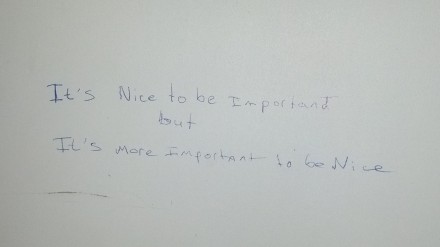 It's Nice to be Important
but
It's more Important to be Nice